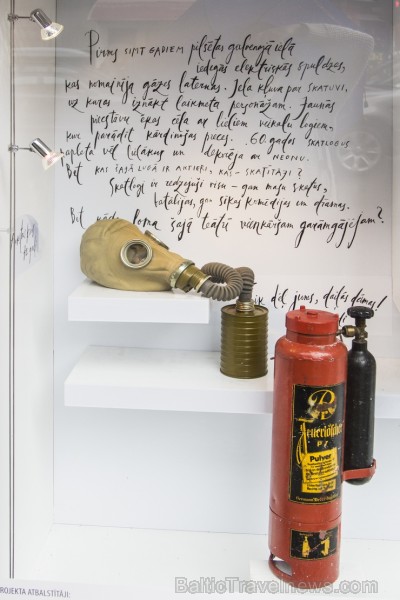 Pirms simt gadiem pilsētas galvenajā ielā
iedegās elektriskās spuldzes,
kas nomainīja gāzes laternas. Iela kļuva par skatuvi,
uz kuras iznākt laikmeta personāžam. Jaunās
piecstāvu ēkas cēla ar lieliem veikalu logiem,
kur parādīt kārdinājas preces. 60. gados skatlogus
aplota vēl lielākus un dekorēja ar neonu.
Bet kas šajā lugā ir aktieri, kas - skatītāji?
Skatlogi ir redzējuši visu - gan masu skatus,
batālijas, gan sīkas komēdijas un drāmas.
Bet kāda loma šajā teātrī vienkāršam garāmgājējam?
tik dēļ jums, daiļās dāmas!
Feuerlöscher
P
Pulver
ROJEKTA ATBALSTĪTĀJI:
BalticTravelnews.com